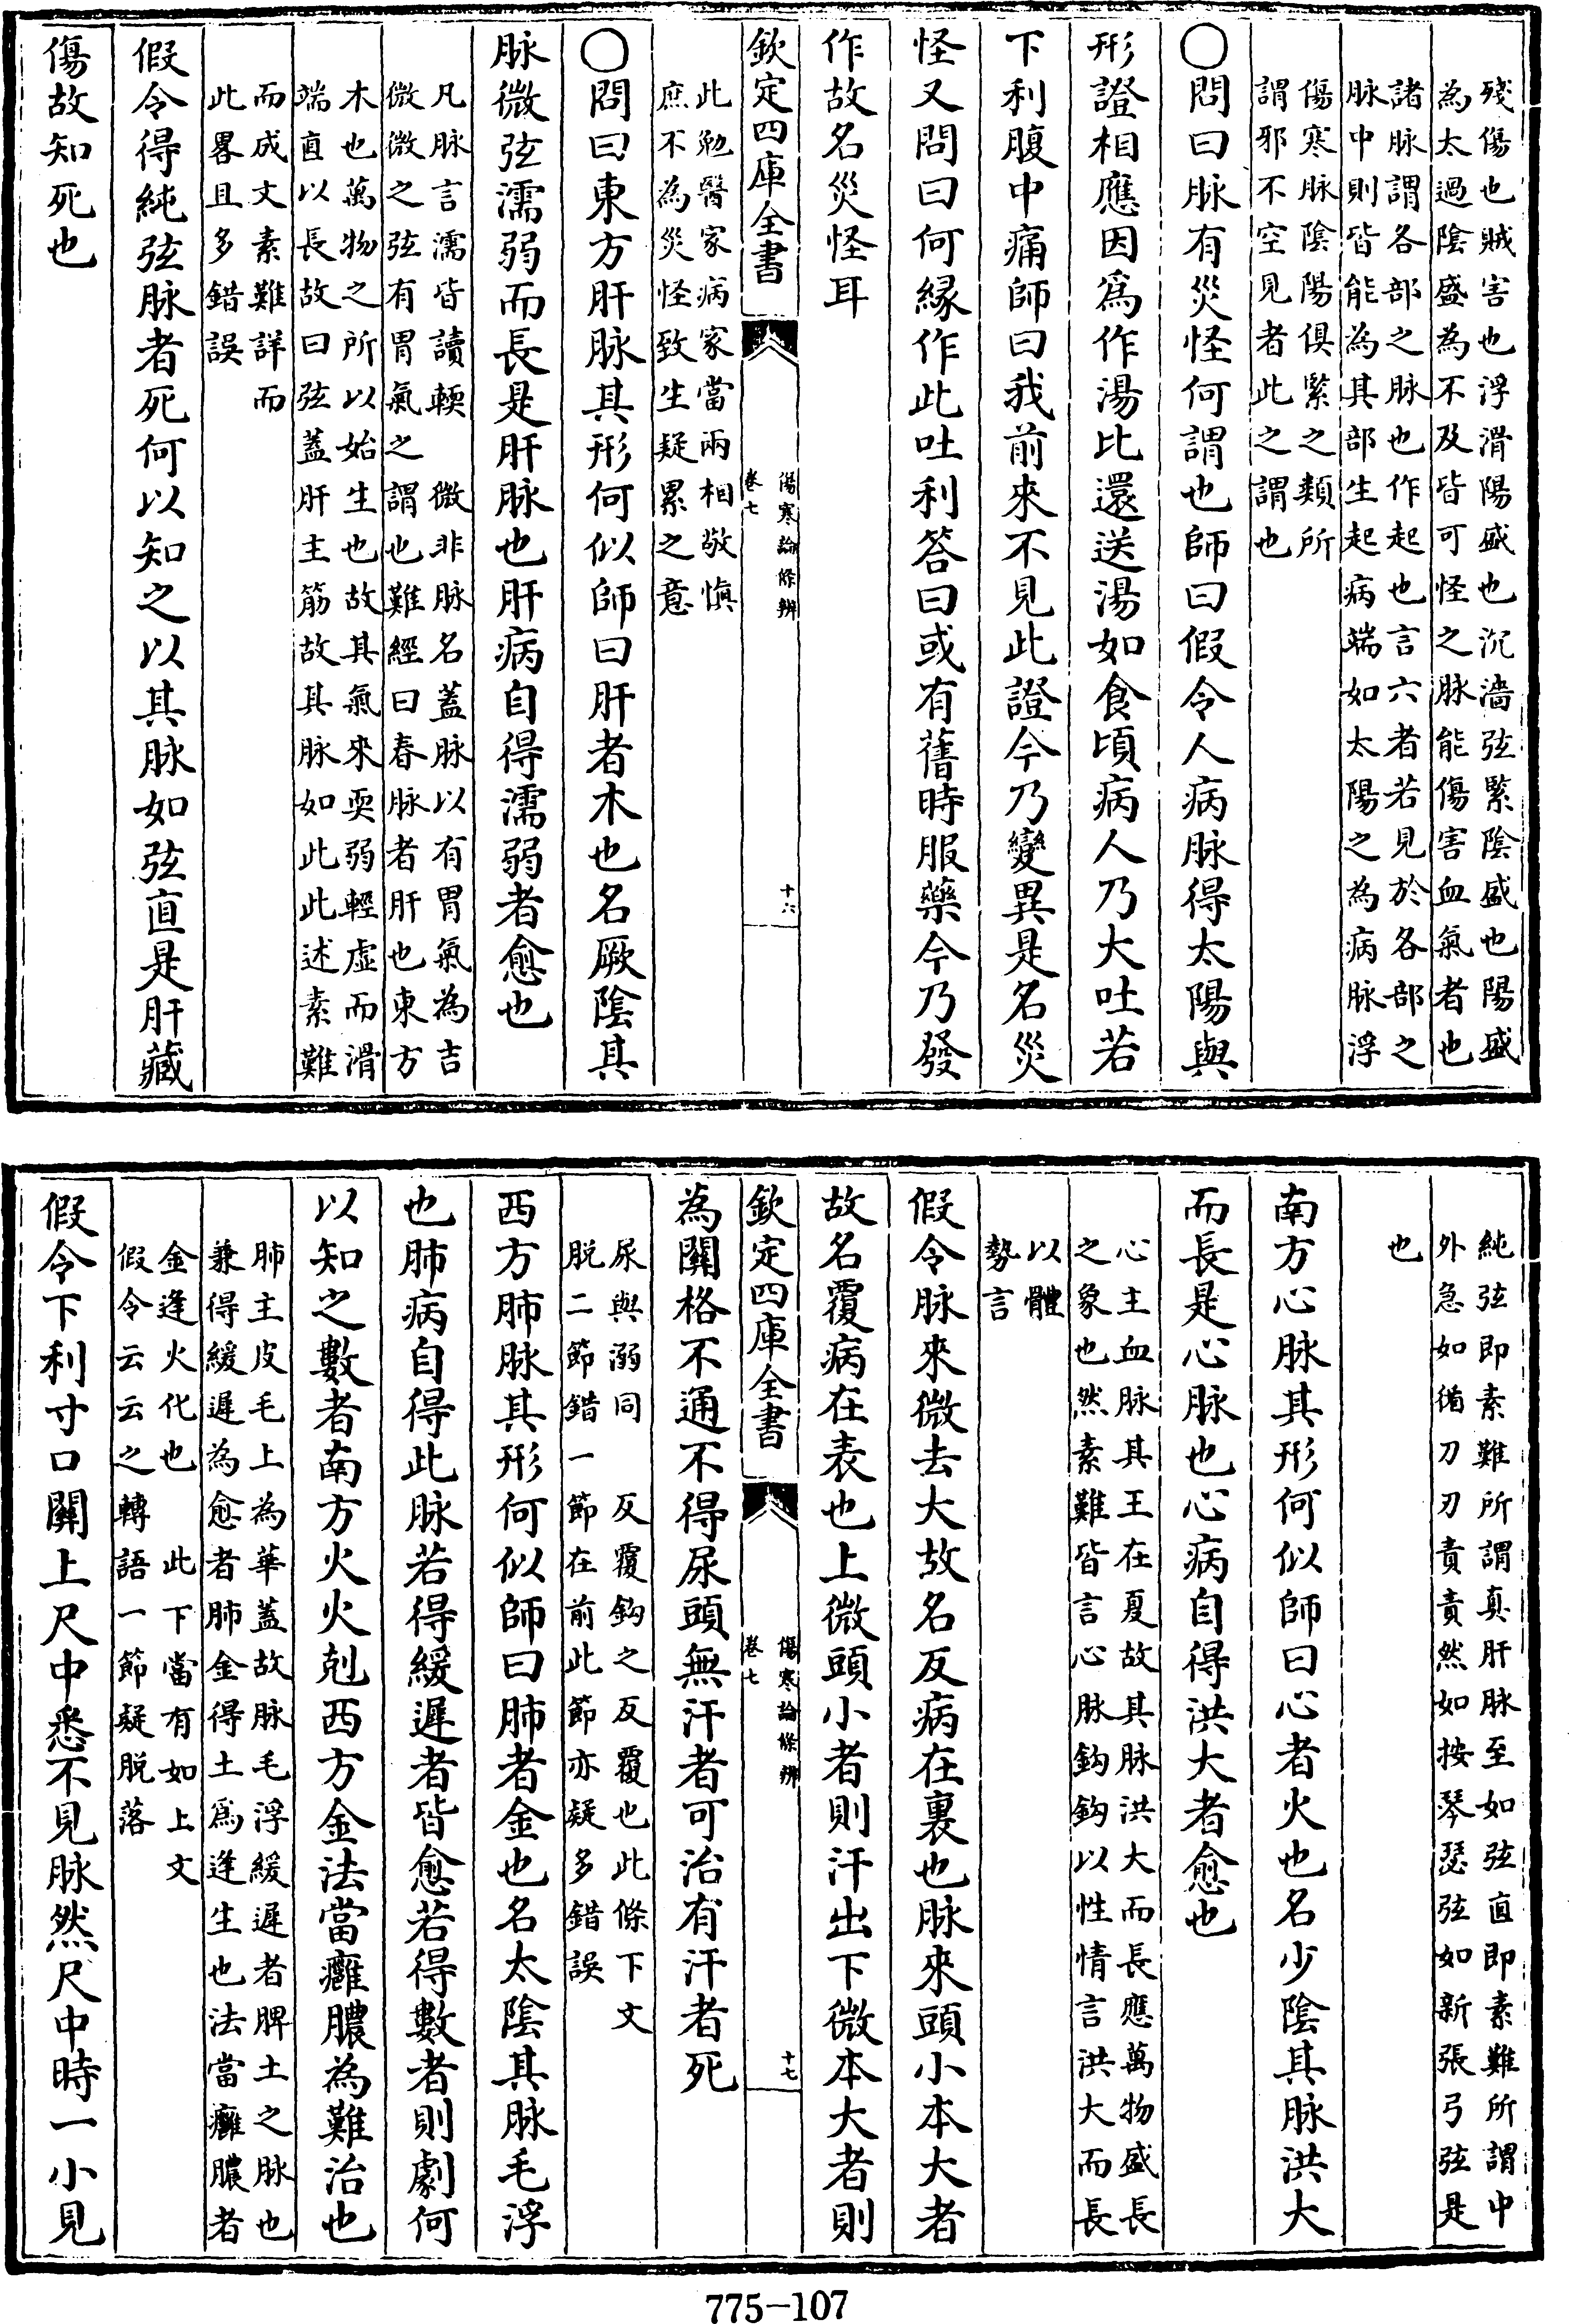 殘傷也賊害也浮滑陽盛也沉濇弦緊陰盛也陽盛
為太過陰盛為不及皆可怪之脉能傷害血氣者也
諸脉謂各部之脉也作起也言六者若見於各部之
脉中則皆能為其部生起病端如太陽之為病脉浮
傷寒脉陰陽俱緊之類所
謂邪不空見者此之謂也
〇問曰脉有災怪何謂也師曰假令人病脉得太陽與
形證相應因爲作湯比還送湯如食頃病人乃大吐若
下利腹中痛師曰我前來不見此證今乃變異是名災
怪又問曰何緣作此吐利答曰或有舊時服藥今乃發
作故名災怪耳
欽定四庫全書
傷寒論條辨
卷七
十六
此勉醫家病家當兩相敬慎
庶不為災怪致生疑累之意
〇問曰東方肝脉其形何似師曰肝者木也名厥陰其
脉微弦濡弱而長是肝脉也肝病自得濡弱者愈也
凡脉言濡皆讀輭 微非脉名蓋脉以有胃氣為吉
微微之弦有胃氣之謂也難經曰春脉者肝也東方
木也萬物之所以始生也故其氣來耎弱輕虛而滑
端直以長故曰弦蓋肝主筋故其脉如此此述素難
而成文素難詳而
此畧且多錯誤
假令得純弦脉者死何以知之以其脉如弦直是肝藏
傷故知死也
純弦即素難所謂真肝脉至如弦直即素難所謂中
外急如循刀刃責責然如按琴瑟弦如新張弓弦是
也
南方心脉其形何似師曰心者火也名少陰其脉洪大
而長是心脉也心病自得洪大者愈也
心主血脉其王在夏故其脉洪大而長應萬物盛長
之象也然素難皆言心脉鈎鈎以性情言洪大而長
以體
勢言
假令脉來微去大故名反病在裏也脉來頭小本大者
故名覆病在表也上微頭小者則汗出下微本大者則
欽定四庫全書
傷寒論條辨
卷七
十七
為關格不通不得尿頭無汗者可治有汗者死
尿與溺同 反覆鈎之反覆也此條下文
脱二節錯一節在前此節亦疑多錯誤
西方肺脉其形何似師曰肺者金也名太陰其脉毛浮
也肺病自得此脉若得緩遲者皆愈若得數者則劇何
以知之數者南方火火剋西方金法當癰膿為難治也
肺主皮毛上為華蓋故脉毛浮緩遲者脾土之脉也
兼得緩遲為愈者肺金得土爲逢生也法當癰膿者
金逢火化也 此下當有如上文
假令云云之轉語一節疑脱落
假令下利寸口關上尺中悉不見脉然尺中時一小見
775-107